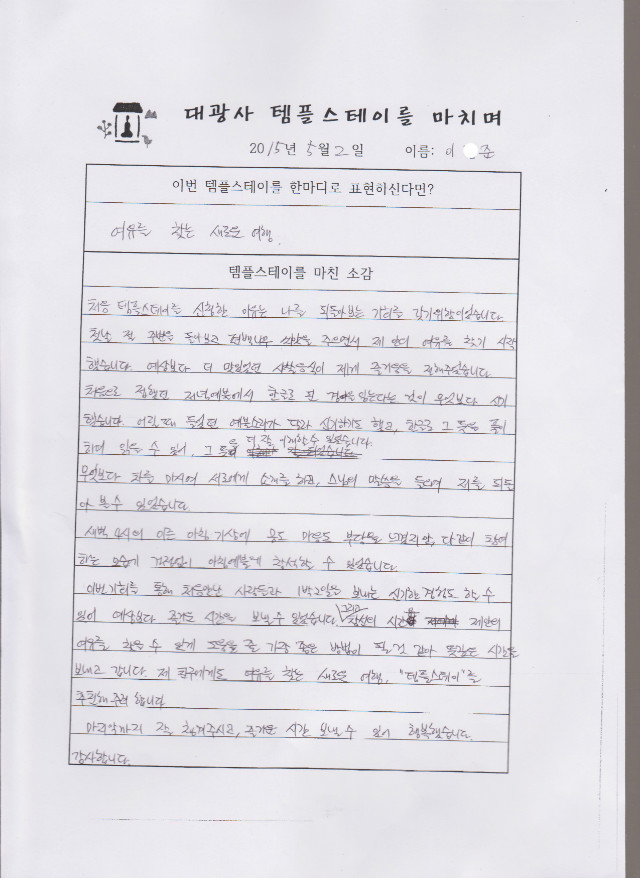 대광사 템플스테이를 마치며
2015년 5월 2일 이름: 이 준
이번 템플스테이를 한마디로 표현하신다면?
여유를 찾는 새로운 여행.
템플스테이를 마친 소감
처음 템플스테이를 신청한 이유는 나를 되돌아보는 기회를 갖기 위함이었습니다.
첫날 절 주변을 돌아보고 제 안의 여유를 찾기 시작
했습니다. 예상보다 더 맛있었던 사찰음식이 제게 즐거움을 전해주었습니다.
처음으로 접했던 저녁예불에서 한글로 된 경을 읽는다는 것이 무엇보다 신기
했습니다. 어릴 때 들었던 예불소리가 달라 신기하기도 했고, 한글로 그 뜻을 풀이
하며 읽을 수 있어, 그 뜻을 더 잘 이해할 수 있었습니다.
무엇보다 차를 마시며 서로에게 소개를 하고, 스님의 말씀을 들으며 저를 되돌
아 볼 수 있었습니다.
새벽 4시의 이른 아침 기상에 몸도 마음도 부담을 느꼈지만, 다같이 참여
하는 모습에 아침예불에 참석할 수 있었습니다.
이번기회를 통해 처음만난 사람들과 1박2일을 보내는 신기한 경험도 할 수
있어 예상보다 즐거운 시간을 보낼 수 있었습니다. 그리고 시간을 제 안의
여유를 찾을 수 있게 도움을 줄 가장 좋은 방법이 될 것 같아 뜻깊은 시간을
보내고 갑니다. 제 친구에게도 여유를 찾는 새로운 여행, "템플스테이"를
추천해주려 합니다.
마지막까지 잘 챙겨주시고, 즐거운 시간 보낼 수 있어 행복했습니다.
감사합니다.